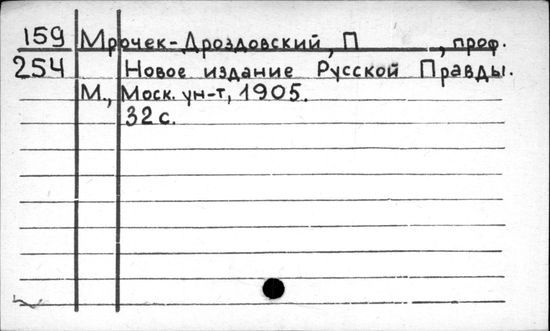 159 Мрочек-Дроздовский, П______, проф.
254 Новое издание Русской Правды.
М., Моск. ун-т, 1905.
32 с.